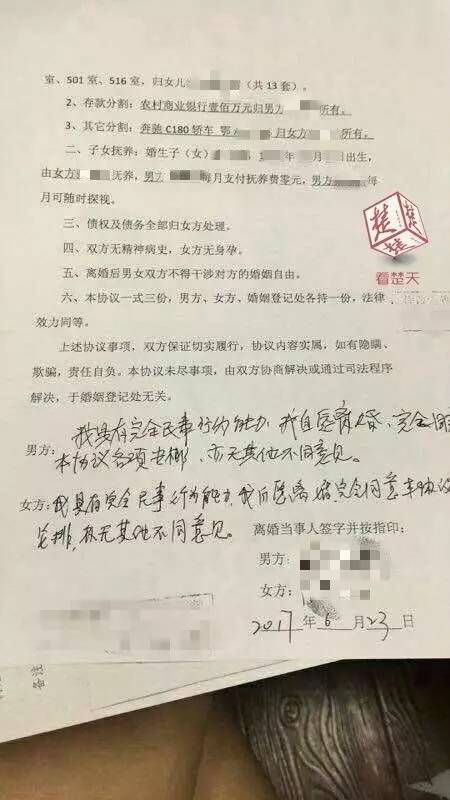 室、501 室、516 室，归女儿（共 13 套）。
2、存款分割：农村商业银行壹佰万元归男方所有。
3、其它分割：奔驰 C180 轿车 鄂归女方所有。
二、子女抚养：婚生子（女），年月日出生，
由女方抚养，男方每月支付抚养费零元，男方每
月可随时探视。
三、债权及债务全部归女方处理。
四、双方无精神病史，女方无身孕。
五、离婚后男女双方不得干涉对方的婚姻自由。
六、本协议一式三份，男方、女方、婚姻登记处各持一份，法律
效力同等。
上述协议事项，双方保证切实履行，协议内容实属，如有隐瞒、
欺骗，责任自负。本协议未尽事项，由双方协商解决或通过司法程序
解决，于婚姻登记处无关。
我具有完全民事行为能力，我自愿离婚，完全同
男方：本协议各项安排，亦无其他不同意见。
女方：我具有完全民事行为能力，我自愿离婚完全同意本协议
安排，亦无其他不同意见。
离婚当事人签字并按指印：
男方：
女方：
2017年6月23日
楚
看楚天
备注